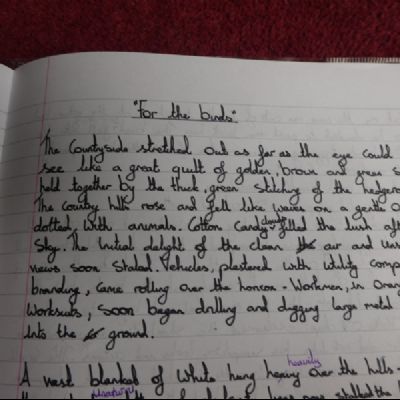 "For the birds"
The Countryside stretched out as far as the eye could
see like a great quilt of golden, brown and green s
held together by the thick, green stitching of the hedgero
The county hills rose and fell like waves on a gentle o
dotted with animals. Cotton Candy clouds filled the lush aft
Sky. The initial delight of the clean the air and uns
views soon Staled. Vehicles, plastered with utility comp
branding, Came rolling over the horizon - Workmen, in Oran
Worksuits, soon began drilling and digging large metal
into the ground.
heavily
A vast blanket of white hung heavy over the hills -
the